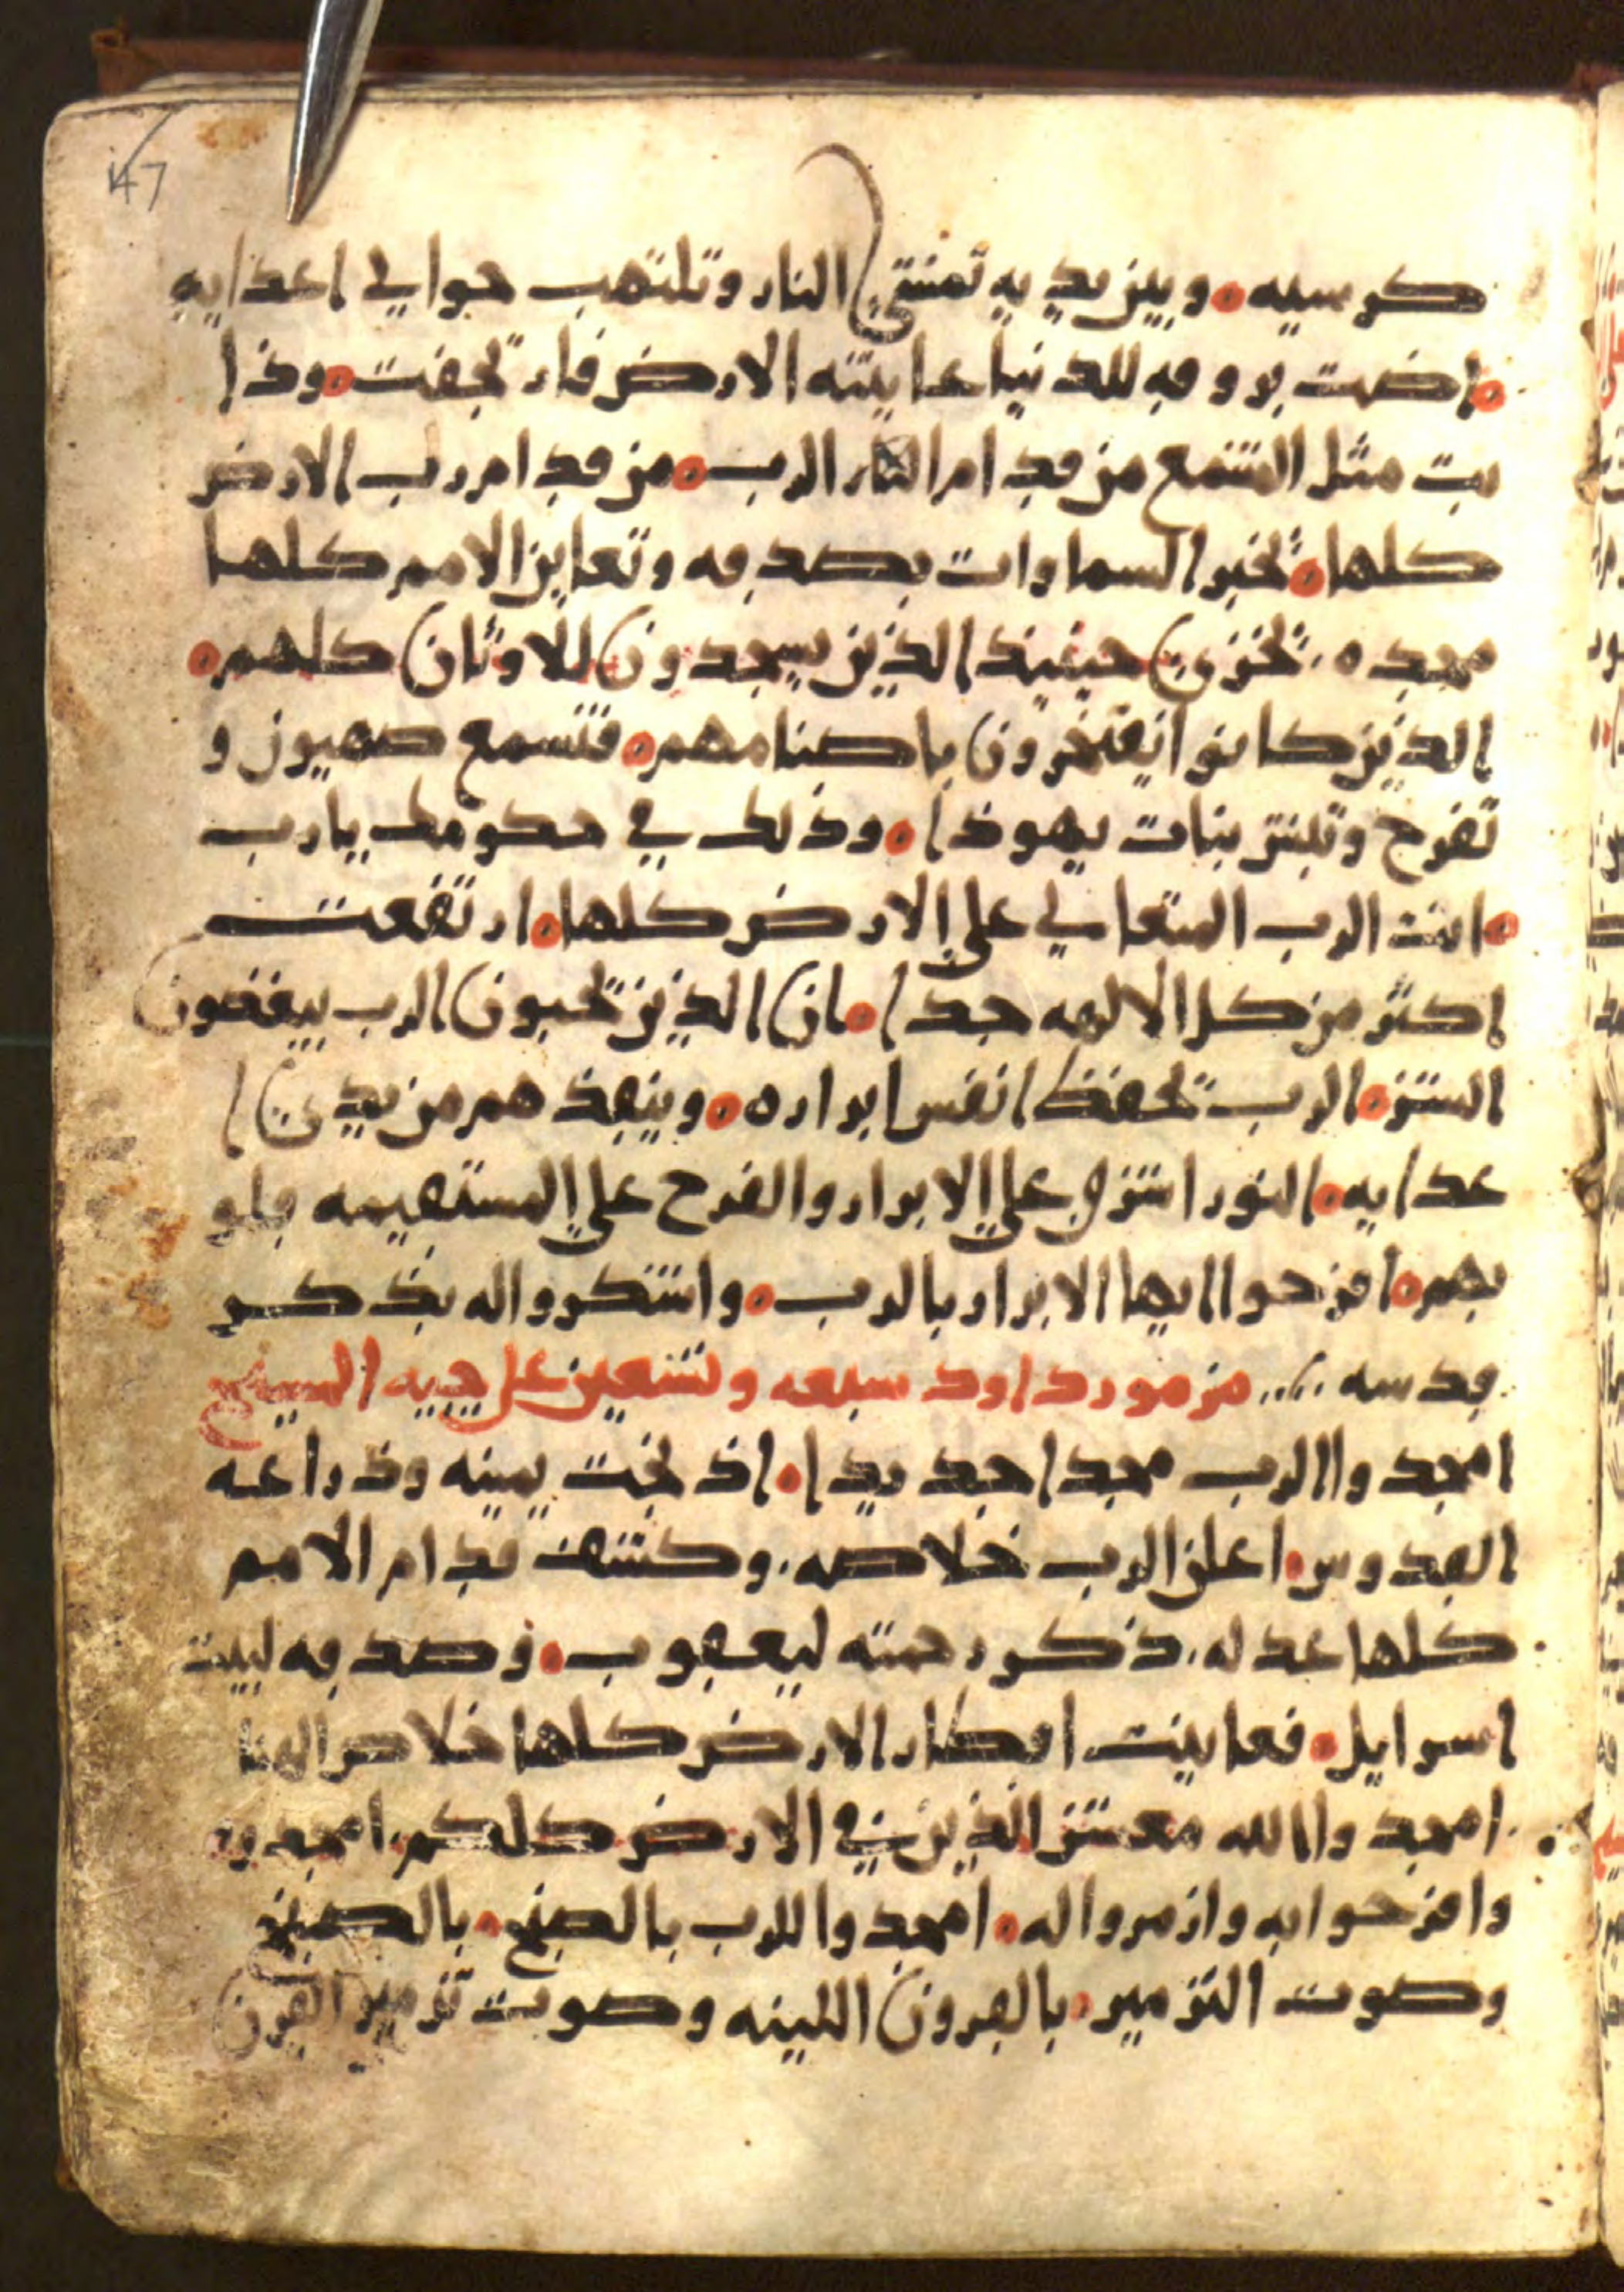 47
كرسيه ٥ وبين يديه تمشي النار وتلتهب حوالي اعدايه
٥ اضت بروقه للدنيا عاينته الارض فارتجفت ٥ وذا
بت مثل الشمع من قدام الرب ٥ من قدام رب الارض
كلها ٥ تخبر السماوات بصدقه وتعاين الامم كلها
مجده ٠ تخزي حينيذ الذين يسجدون للاوثان كلهم ٥
الذين كانوا يفتخرون باصنامهم ٥ فتسمع صهيون و
تفرح وتبشر بنات يهوذا ٥ وذلك في حكومتك يا رب
٥ انت الرب المتعالي على الارض كلها ٥ ارتفعت
اكثر من كل الالهه جدا ٥ ان الذين يحبون الرب يبغضون
الشر ٥ الرب يحفظ انفس ابراره ٥ وينقذهم من يدي ا
عدايه ٥ النور اشرق على الابرار والفرح على المستقيمه قلو
بهم ٥ افرحوا ايها الابرار بالرب ٥ واشكروا له بذكر
قدسه ... مزمور داود سبعه وتسعين على جيه المسيح
امجدوا الرب مجدا جديدا ٥ اذ نجت يمينه وذراعه
القدوس ٥ اعلن الرب خلاصه ٠ وكشف قدام الامم
كلها عدله ٠ ذكر رحمته ليعقوب ٥ وصدقه لبيت
اسرايل ٥ فعاينت اقطار الارض كلها خلاص الهنا
٠ امجدوا الله معشر الذين في الارض كلكم ٠ امجدوه
وافرحوا به وازمروا له ٥ امجدوا للرب بالصنج ٥ بالصنج
وصوت التزمير ٠ بالقرون اللينه وصوت تزمير القرن